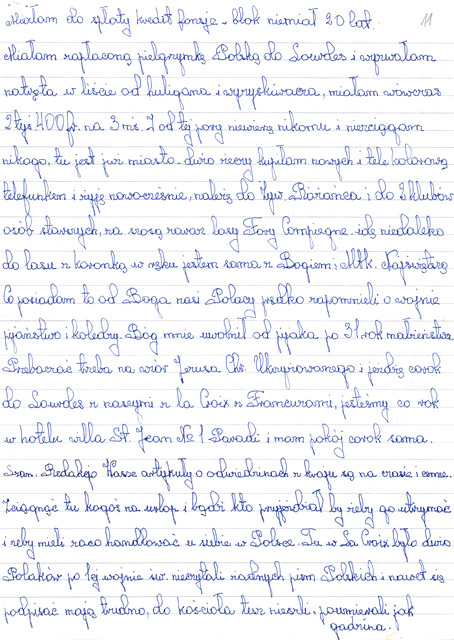 11
Miałam do spłaty kredit fonsje - blok niemiał 20 lat.
Miałam zapłaconą pielgrzymkę Polską do Lourdes i wyrwałam
natręta w liście od huligana i wyzyskiwacza, miałam wówczas
2 tyś 400 fr. na 3 mś. I od tej pory niewierzę nikomu i nieściągam
nikogo, tu jest już miasto - dużo rzeczy kupiłam nowych i tele kolorową
telefunken i żyję nowocześnie, należę do Żyw. Różańca i do 2 klubów
osób starszych, za szosą zaraz lasy Fory Compiegne - idę niedaleko
do lasu z koronką w ręku jestem sama z Bogiem i Mtk. Najświętszą
Co posiadam to od Boga nasi Polacy prędko zapomnieli o wojnie
pijaństwo i kolędry. Bóg mnie uwolnił od pijaka po 31 rok małżeństwa
Przebaczać trzeba na wzór Jezusa Chr. Ukrzyżowanego i jeżdżę co rok
do Lourdes z naszymi z la Croix z Francuzami, jesteśmy co rok
w hotelu willa St. Jean № 1 Paradi i mam pokój co rok sama.
Szan. Redakcjo Wasze artykuły o odwiedzinach z kraju są na czasie i cenne.
Ściągnąć tu kogoś na urlop i bądź kto przyjeżdżał by żeby go utrzymać
i żeby mieli za co handlować u siebie w Polsce. Tu w La Croix było dużo
Polaków po 1ej wojnie św. nieczytali żadnych pism Polskich i nawet się
podpisać mają trudno, do kościoła tuż nieszli, poumierali jak
gadzina!